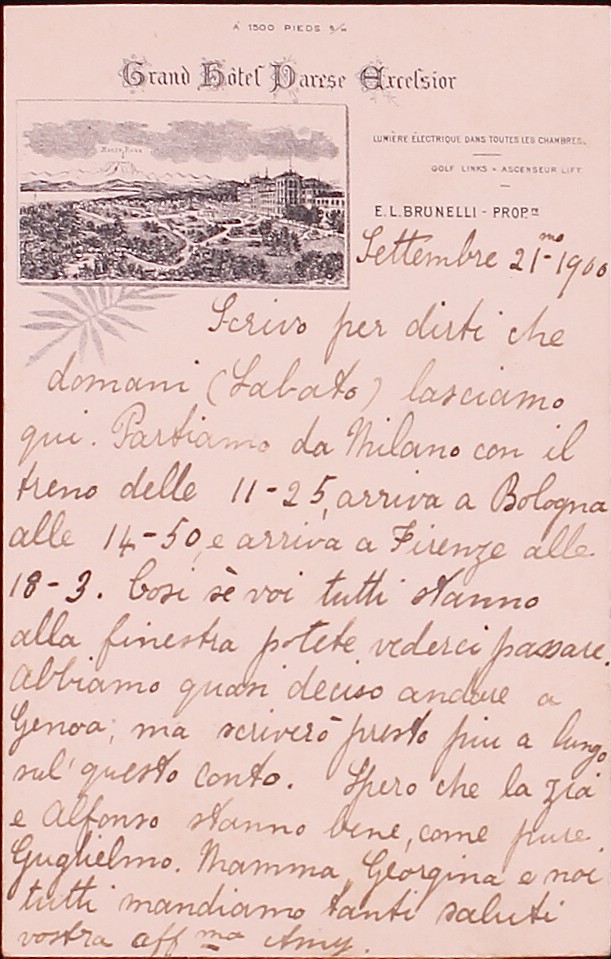 À 1500 PIEDS s/m
Grand Hôtel Varese Excelsior
Monte Rosa
LUMIÈRE ÉLECTRIQUE DANS TOUTES LES CHAMBRES.
GOLF LINKS - ASCENSEUR LIFT.
E. L. BRUNELLI - PROP.re
Settembre 21mo-1900
Scrivo per dirti che
domani (Sabato) lasciamo
qui. Partiamo da Milano con il
treno delle 11-25, arriva a Bologna
alle 14-50, e arriva a Firenze alle
18-3. Cosi sè voi tutti stanno
alla finestra potete vederci passare.
Abbiamo quasi deciso andare a
Genoa; ma scriverò presto piu a lungo
sul' questo conto. Spero che la zia
e Alfonso stanno bene, come pure
Guglielmo. Mamma, Georgina e noi
tutti mandiamo tanti saluti
vostra affma Amy.